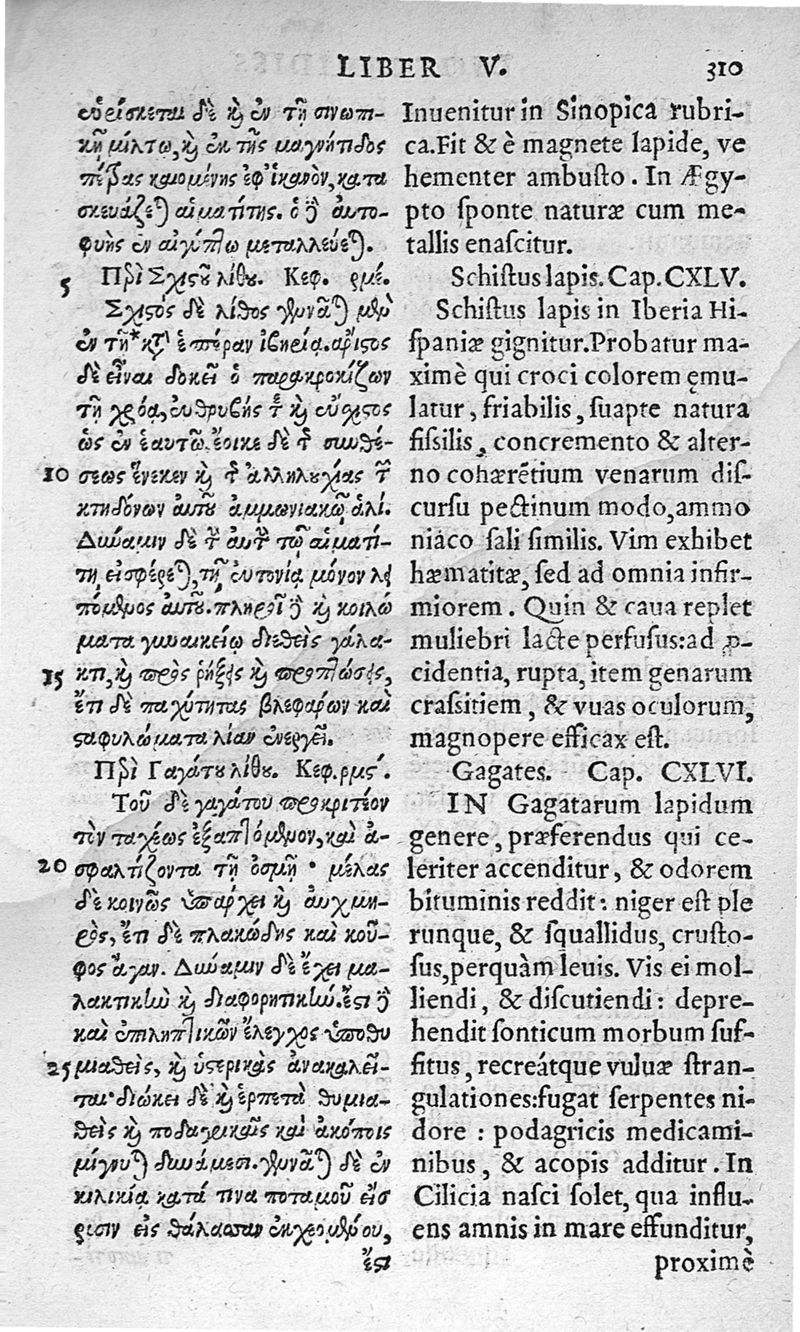 LIBER V. 310
εὑρίσκεται δὲ κ̀ ἐν τῇ σινωπι-
κῇ μίλτῳ, κ̀ ἐκ τῆς μαγνήτιδος
πέτρας καιομένης ἐφ' ἱκανὸν, κατα
σκευάζεται αἱματίτης. ὁ δὲ αὐτο-
φυὴς ἐν αἰγύπτῳ μεταλλεύεται.
5 Περὶ Σχιστοῦ λίθου. Κεφ. ρμέ.
Σχιστὸς δὲ λίθος γεννᾶται μὲν
ἐν τῇ* κτ̀ ἑσπέραν ἰβηρίᾳ. ἄριστος
δὲ εἶναι δοκεῖ ὁ παρακροκίζων
τῇ χρόᾳ, εὐθρυβής τε κ̀ εὔσχιστος
ὡς ἐν ἑαυτῷ. ἔοικε δὲ τ̃ συνθέ-
10 σεως ἕνεκεν κ̀ τ̃ ἀλληλουχίας τ̃
κτηδόνων αὐτοῦ ἀμμωνιακῷ ἁλί.
Δύναμιν δὲ τ̀ αὐτ̀ τῷ αἱματί-
τῃ εἰσφέρεται, τῇ εὐτονίᾳ μόνον λει
πόμενος αὐτοῦ. πληροῖ δὲ κ̀ κοιλώ
ματα γυναικείῳ διεθεὶς γάλα-
15 κτι, κ̀ πρὸς ῥήξεις κ̀ προπτώσεις,
ἔτι δὲ παχύτητας βλεφάρων καὶ
σταφυλώματα λίαν ἐνεργεῖ.
Περὶ Γαγάτου λίθου. Κεφ. ρμϛ́.
Τοῦ δὲ γαγάτου προκριτέον
τὸν ταχέως ἐξαπτόμενον, καὶ ἀ-
20 σφαλτίζοντα τῇ ὀσμῇ · μέλας
δὲ κοινῶς ὑπάρχει κ̀ αὐχμη-
ρὸς, ἔτι δὲ πλακώδης καὶ κοῦ-
φος ἄγαν. Δύναμιν δὲ ἔχει μα-
λακτικὴν κ̀ διαφορητικήν. ἔστι δὲ
καὶ ἐπιληπτικῶν ἔλεγχος ὑποθυ
25 μιαθεὶς, κ̀ ὑστερικὰς ἀνακαλεῖ-
ται· διώκει δὲ κ̀ ἑρπετὰ θυμια-
θεὶς κ̀ ποδαγρικαῖς καὶ ἀκόποις
μίγνυται δυνάμεσι. γεννᾶται δὲ ἐν
κιλικίᾳ κατά τινα ποταμοῦ εἴσ
ρισιν εἰς θάλασσαν ἐκχεομένου,
ἔστι
Inuenitur in Sinopica rubri-
ca. Fit & è magnete lapide, ve
hementer ambusto. In Ægy-
pto sponte naturæ cum me-
tallis enascitur.
Schistus lapis. Cap. CXLV.
Schistus lapis in Iberia Hi-
spaniæ gignitur. Probatur ma-
ximè qui croci colorem ęmu-
latur, friabilis, suapte natura
fissilis, concremento & alter-
no cohærẽtium venarum dis-
cursu pectinum modo, ammo
niaco sali similis. Vim exhibet
hæmatitæ, sed ad omnia infir-
miorem. Quin & caua replet
muliebri lacte perfusus: ad p-
cidentia, rupta, item genarum
crassitiem, & vuas oculorum,
magnopere efficax est.
Gagates. Cap. CXLVI.
IN Gagatarum lapidum
genere, præferendus qui ce-
leriter accenditur, & odorem
bituminis reddit: niger est ple
runque, & squallidus, crusto-
sus, perquàm leuis. Vis ei mol-
liendi, & discutiendi: depre-
hendit sonticum morbum suf-
fitus, recreátque vuluæ stran-
gulationes: fugat serpentes ni-
dore: podagricis medicami-
nibus, & acopis additur. In
Cilicia nasci solet, qua influ-
ens amnis in mare effunditur,
proximè